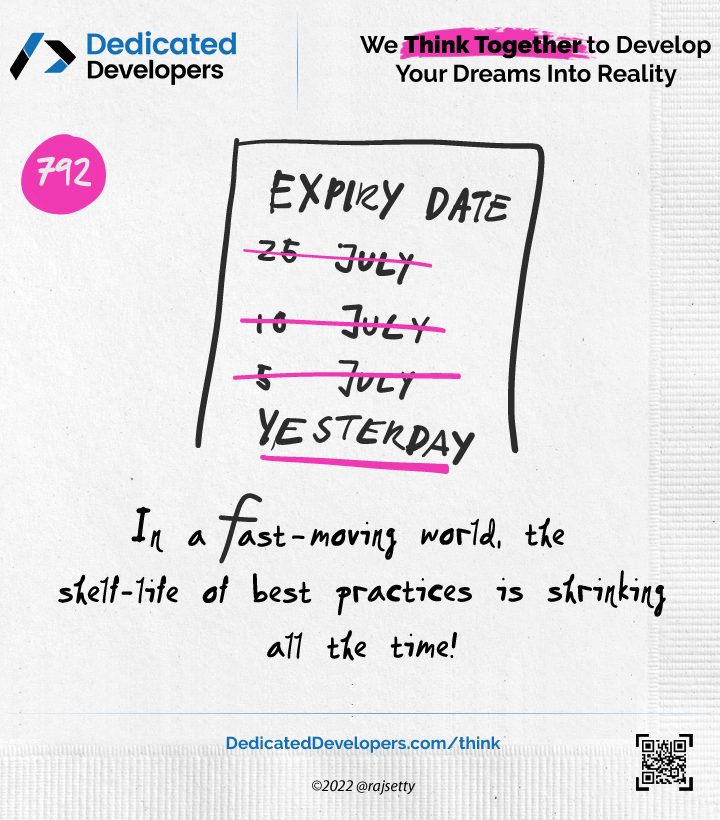 Dedicated
Developers
We Think Together to Develop
Your Dreams Into Reality
792
EXPIRY DATE
25 JULY
10 JULY
5 JULY
YESTERDAY
In a fast-moving world, the
shelf-life of best practices is shrinking
all the time!
DedicatedDevelopers.com/think
©2022 @rajsetty